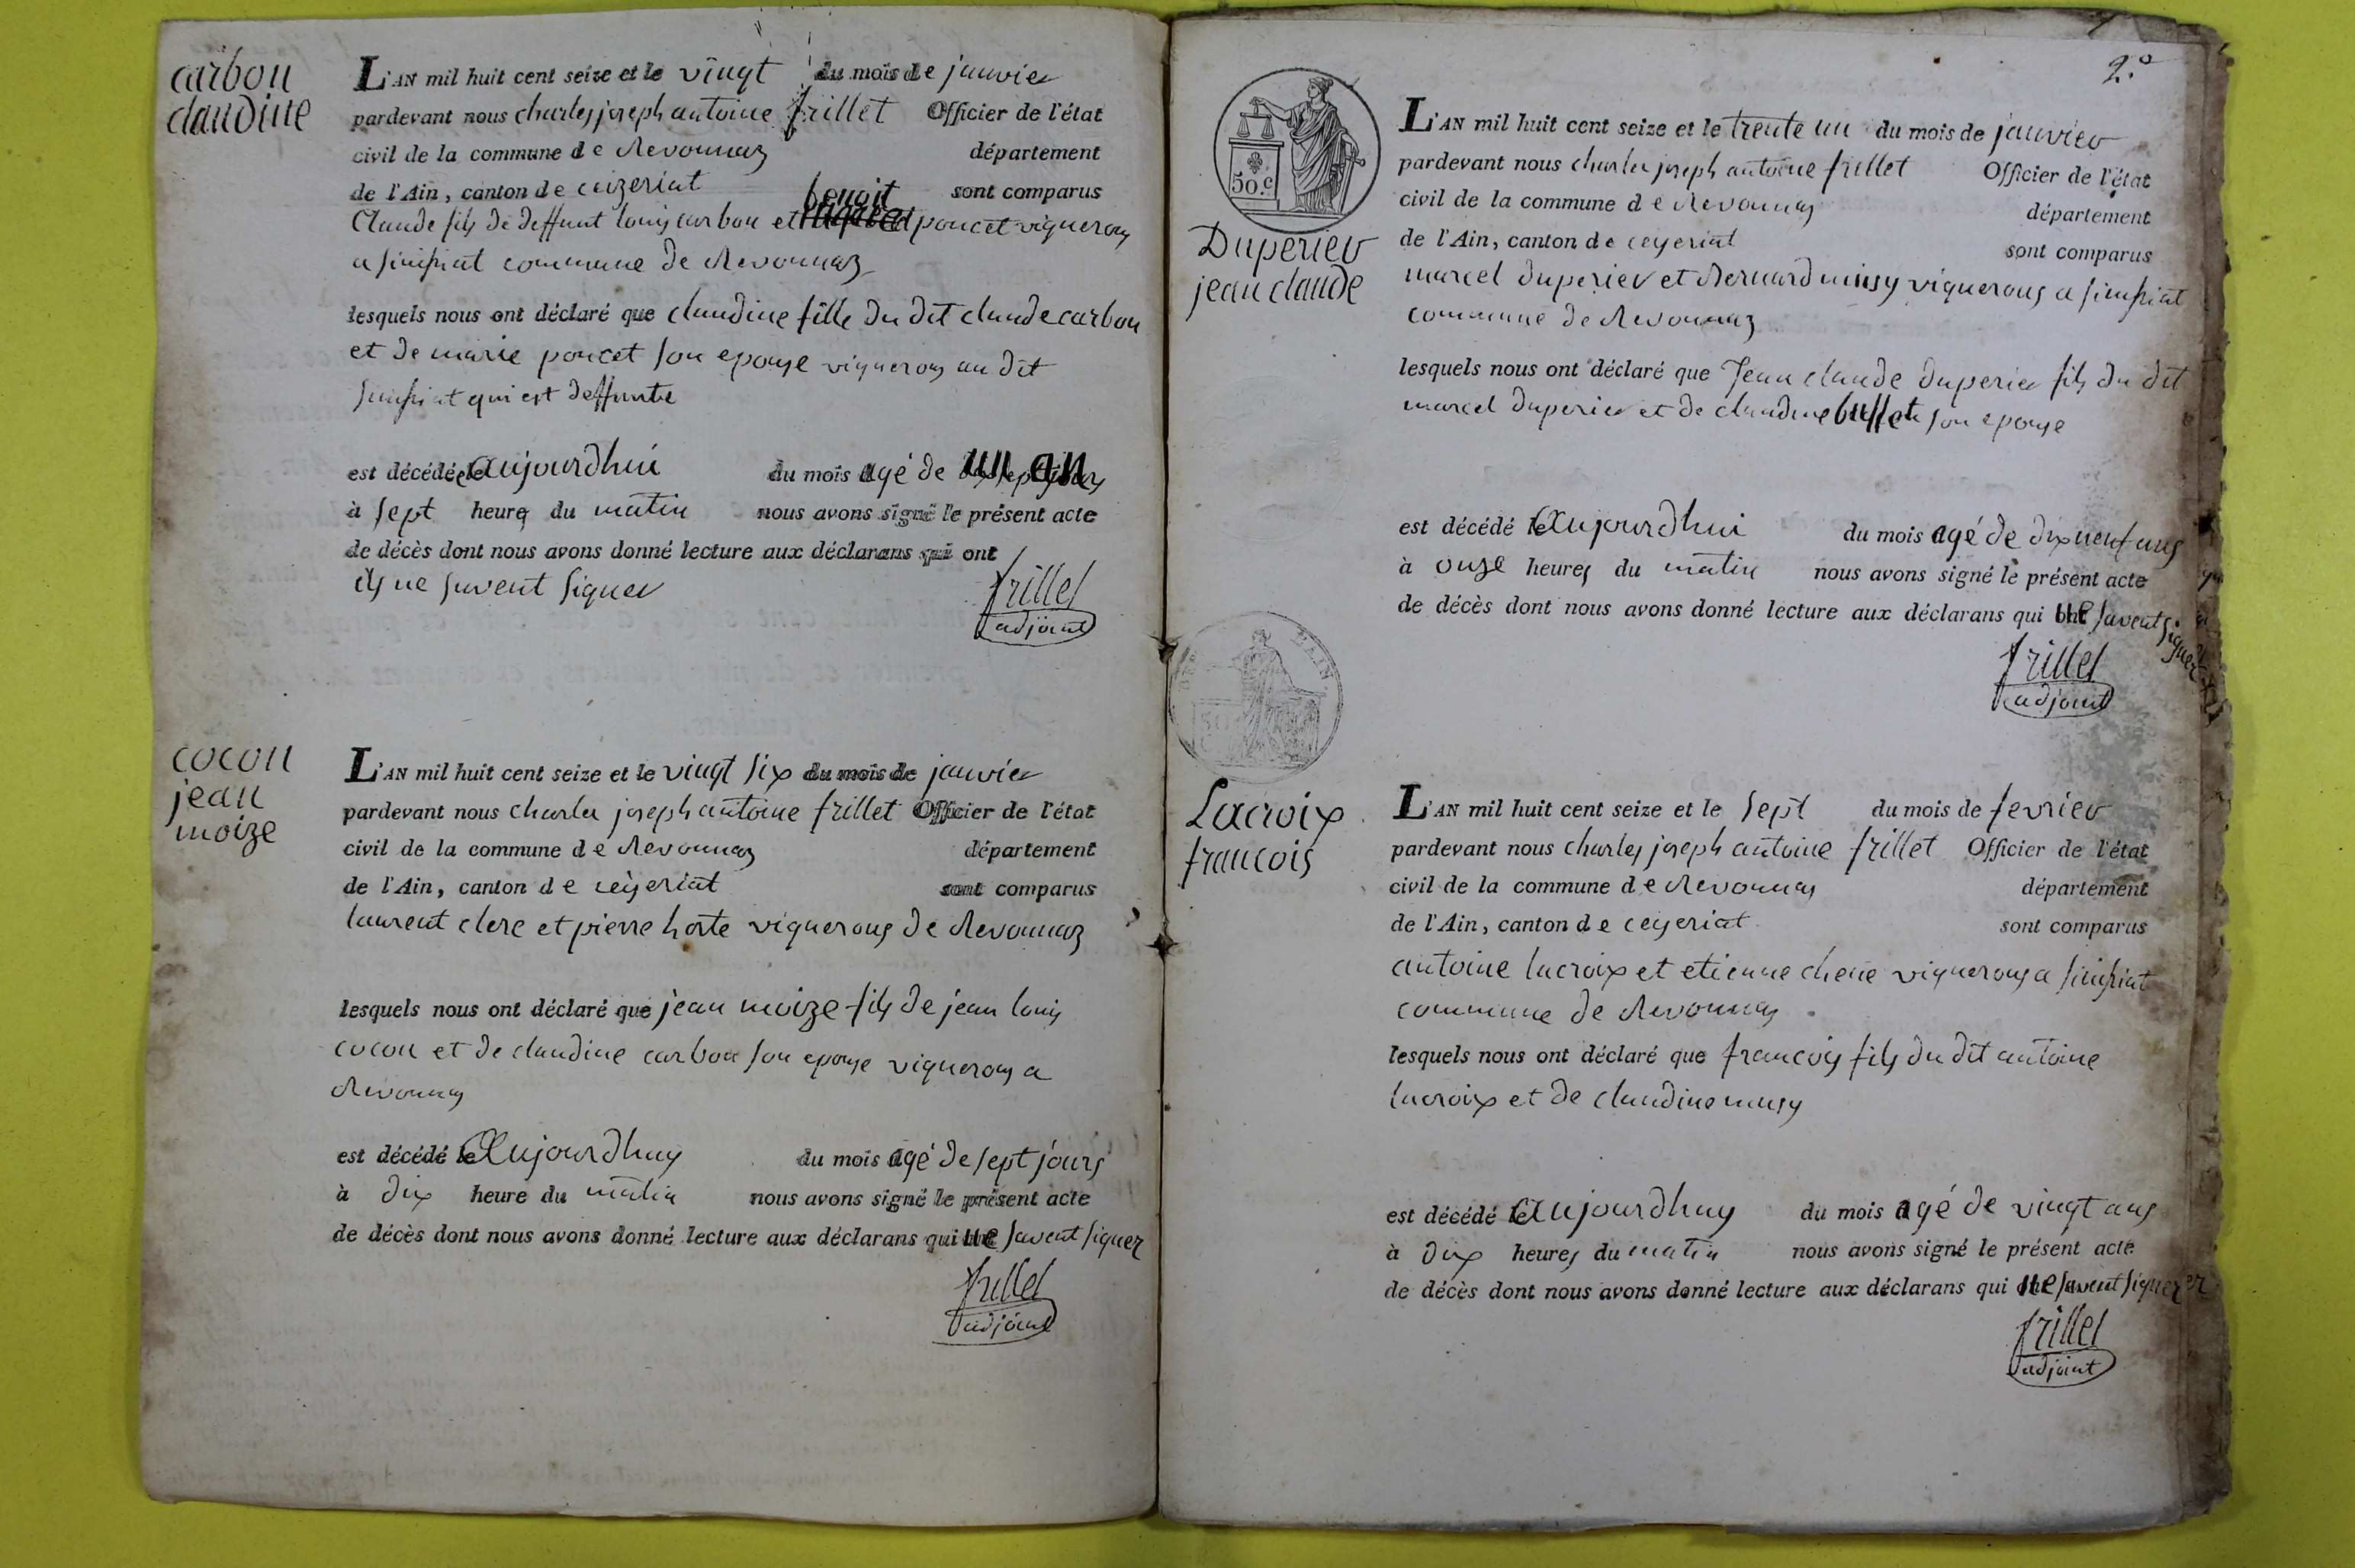 carbon
claudine
L'AN mil huit cent seize et le vingt du mois de janvier
pardevant nous charles joseph antoine frillet Officier de l'état
civil de la commune de Revonnaz département
de l'Ain, canton de ceizeriat sont comparus
benoit
Claude fils de deffunt louis carbon et poncet vignerons
a simfriat commune de Revonnaz
lesquels nous ont déclaré que claudine fille du dit claude carbon
et de marie poncet son epouse vignerons au dit
simfriat qui est deffunte
est décédée le aujourdhui du mois agé de un an
à sept heures du matin nous avons signé le présent acte
de décès dont nous avons donné lecture aux déclarans qui ont
ils ne savent signer
frillet
adjoint
cocon
jean
moize
L'AN mil huit cent seize et le vingt six du mois de janvier
pardevant nous charles joseph antoine frillet Officier de l'état
civil de la commune de Revonnaz département
de l'Ain, canton de ceyzeriat sont comparus
laurent clere et pierre horte vignerons de Revonnaz
lesquels nous ont déclaré que jean moize fils de jean louis
cocon et de claudine carbon son epouse vignerons a
Revonnas
est décédé le Aujourdhuy du mois agé de sept jours
à dix heure du matin nous avons signé le présent acte
de décès dont nous avons donné lecture aux déclarans qui ne savent signer
frillet
adjoint
2.e
50.c
Duperier
jean claude
L'AN mil huit cent seize et le trente un du mois de janvier
pardevant nous charles joseph antoine frillet Officier de l'état
civil de la commune de Revonnas département
de l'Ain, canton de ceyeriat sont comparus
marcel duperier et Bernard musy vignerons a simfriat
commune de Revonnaz
lesquels nous ont déclaré que Jean claude duperier fils du dit
marcel duperier et de claudine son epouse
est décédé le Aujourdhui du mois agé de dix neuf ans
à onze heures du matin nous avons signé le présent acte
de décès dont nous avons donné lecture aux déclarans qui ne savent signer
frillet
adjoint
Lacroix
francois
L'AN mil huit cent seize et le sept du mois de fevrier
pardevant nous charles joseph antoine frillet Officier de l'état
civil de la commune de Revonnas département
de l'Ain, canton de ceyeriat sont comparus
antoine lacroix et etienne chene vignerons a simfriat
commune de Revonnas
lesquels nous ont déclaré que francois fils du dit antoine
lacroix et de claudine musy
est décédé le Aujourdhuy du mois agé de vingt ans
à dix heures du matin nous avons signé le présent acte
de décès dont nous avons donné lecture aux déclarans qui ne savent signer
frillet
adjoint